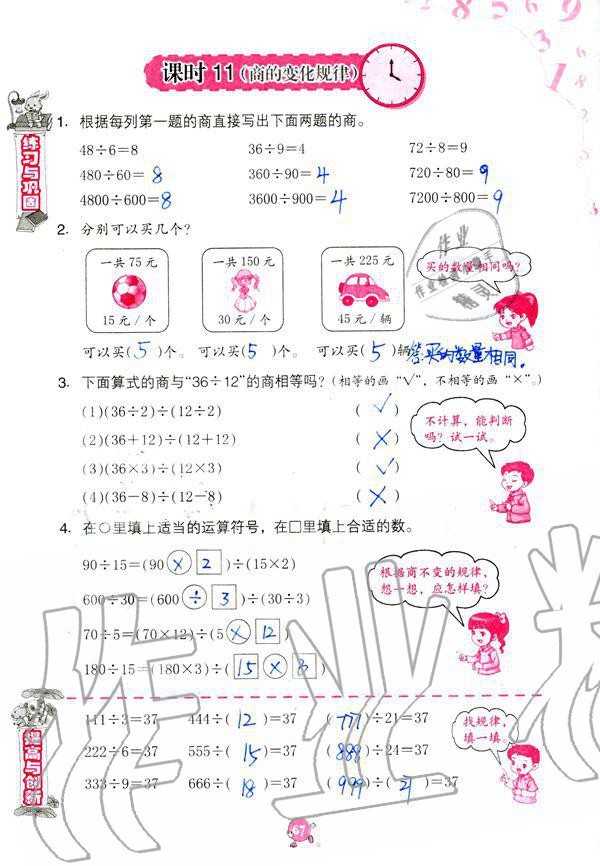 课时 11（商的变化规律）
练习与巩固
1. 根据每列第一题的商直接写出下面两题的商。
48÷6=8 36÷9=4 72÷8=9
480÷60=8 360÷90=4 720÷80=9
4800÷600=8 3600÷900=4 7200÷800=9
2. 分别可以买几个?
一共75元 一共150元 一共225元
15元/个 30元/个 45元/辆
买的数量相同吗?
可以买(5)个。 可以买(5)个 可以买(5)辆 答:买的数量相同。
3. 下面算式的商与“36÷12”的商相等吗?(相等的画“√”,不相等的画“×”。)
(1)(36÷2)÷(12÷2) (√)
(2)(36+12)÷(12+12) (×)
(3)(36×3)÷(12×3) (√)
(4)(36-8)÷(12-8) (×)
不计算,能判断吗?试一试。
4. 在○里填上适当的运算符号,在□里填上合适的数。
90÷15=(90×2)÷(15×2)
600÷30=(600÷3)÷(30÷3)
70÷5=(70×12)÷(5×12)
180÷15=(180×3)÷(15×3)
根据商不变的规律,想一想,应怎样填?
提高与创新
111÷3=37 444÷(12)=37 (777)÷21=37
222÷6=37 555÷(15)=37 (888)÷24=37
333÷9=37 666÷(18)=37 (999)÷(27)=37
找规律,填一填。
67
作业精